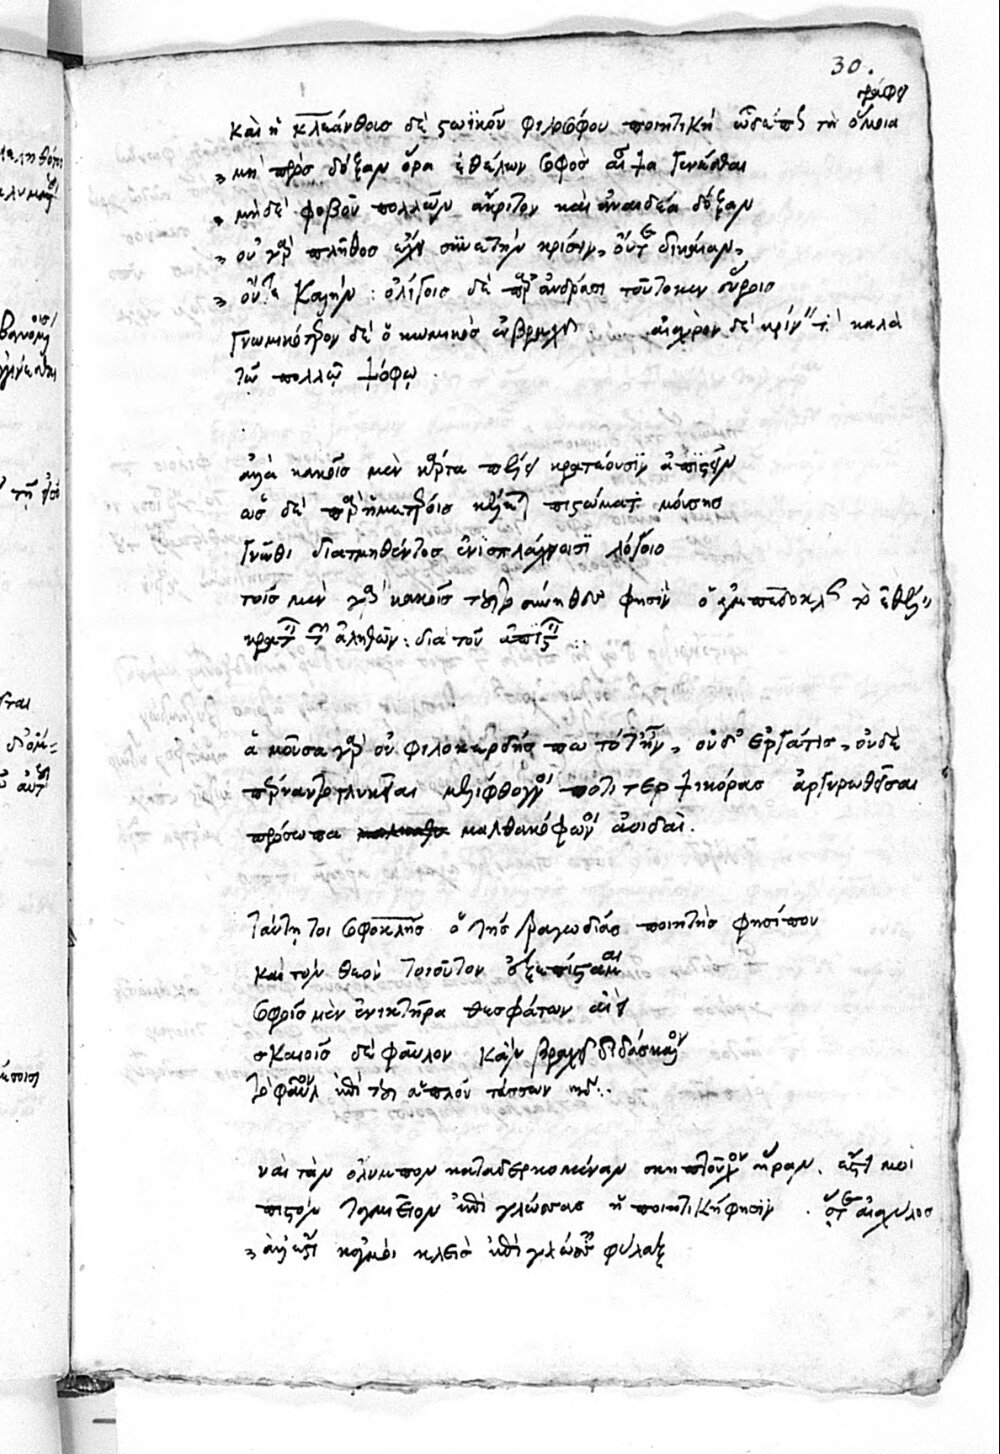 30.
γράφει
καὶ ἡ κλεάνθους δὲ στωϊκοῦ φιλοσόφου ποιητικὴ ὧδέ πως τὰ ὅμοια
μὴ πρὸς δόξαν ὅρα ἐθέλων σοφὸς αἶψα γενέσθαι
μηδὲ φοβοῦ πολλῶν ἄκριτον καὶ ἀναιδέα δόξαν
οὐ γὰρ πλῆθος ἔχει συνετὴν κρίσιν, οὔτε δικαίαν,
οὔτε καλήν: ὀλίγοις δὲ παρ' ἀνδράσι τοῦτο κεν εὕροις
γνωμικότερον δὲ ὁ κωμικὸς ἐν βραχεῖ αἰσχρὸν δὲ κρίνειν τὰ καλὰ
τῷ πολλῷ ψόφῳ
ἀλλὰ κακοῖς μὲν κάρτα πέλει κρατέουσιν ἀπιστεῖν
ὡς δὲ παρ' ἡμετέρης κέλεται πιστώματα μούσης
γνῶθι διατμηθέντος ἐνὶ σπλάγχνοισι λόγοιο
τοῖς μὲν γὰρ κακοῖς τοῦτο σύνηθες φησὶν ὁ ἐμπεδοκλῆς τὸ ἐθέλειν
κρατεῖν τῶν ἀληθῶν: διὰ τοῦ ἀπιστεῖν
ἁ μοῦσα γὰρ οὐ φιλοκερδής πω τότ' ἦν, οὐδ' ἐργάτις, οὐδὲ
πέρναντο γλυκεῖαι μελιφθόγγοι ποτὶ τερψιχόρας ἀργυρωθεῖσαι
πρόσωπα μαλθακόφωνοι ἀοιδαί.
ταύτῃ τοι σοφοκλῆς ὁ τῆς τραγωδίας ποιητὴς φησί που
καὶ τὸν θεὸν τοιοῦτον ἐξεπίσταμαι
σοφοῖς μὲν αἰνικτῆρα θεσφάτων ἀεὶ
σκαιοῖς δὲ φαῦλον κἀν βραχεῖ διδάσκαλον
τὸ φαῦλον ἐπὶ τοῦ ἁπλοῦ τάσσων
ναὶ τὰν ὄλυμπον καταδερκομέναν σκηπτοῦχον ἥραν. ἔστι μοι
πιστὸν ταμιεῖον ἐπὶ γλώσσας ἡ ποιητική φησιν. ὅ τε αἰσχύλος
ἀλλ' ἔστι κἀμοὶ κλεὶς ἐπὶ γλώσσῃ φύλαξ